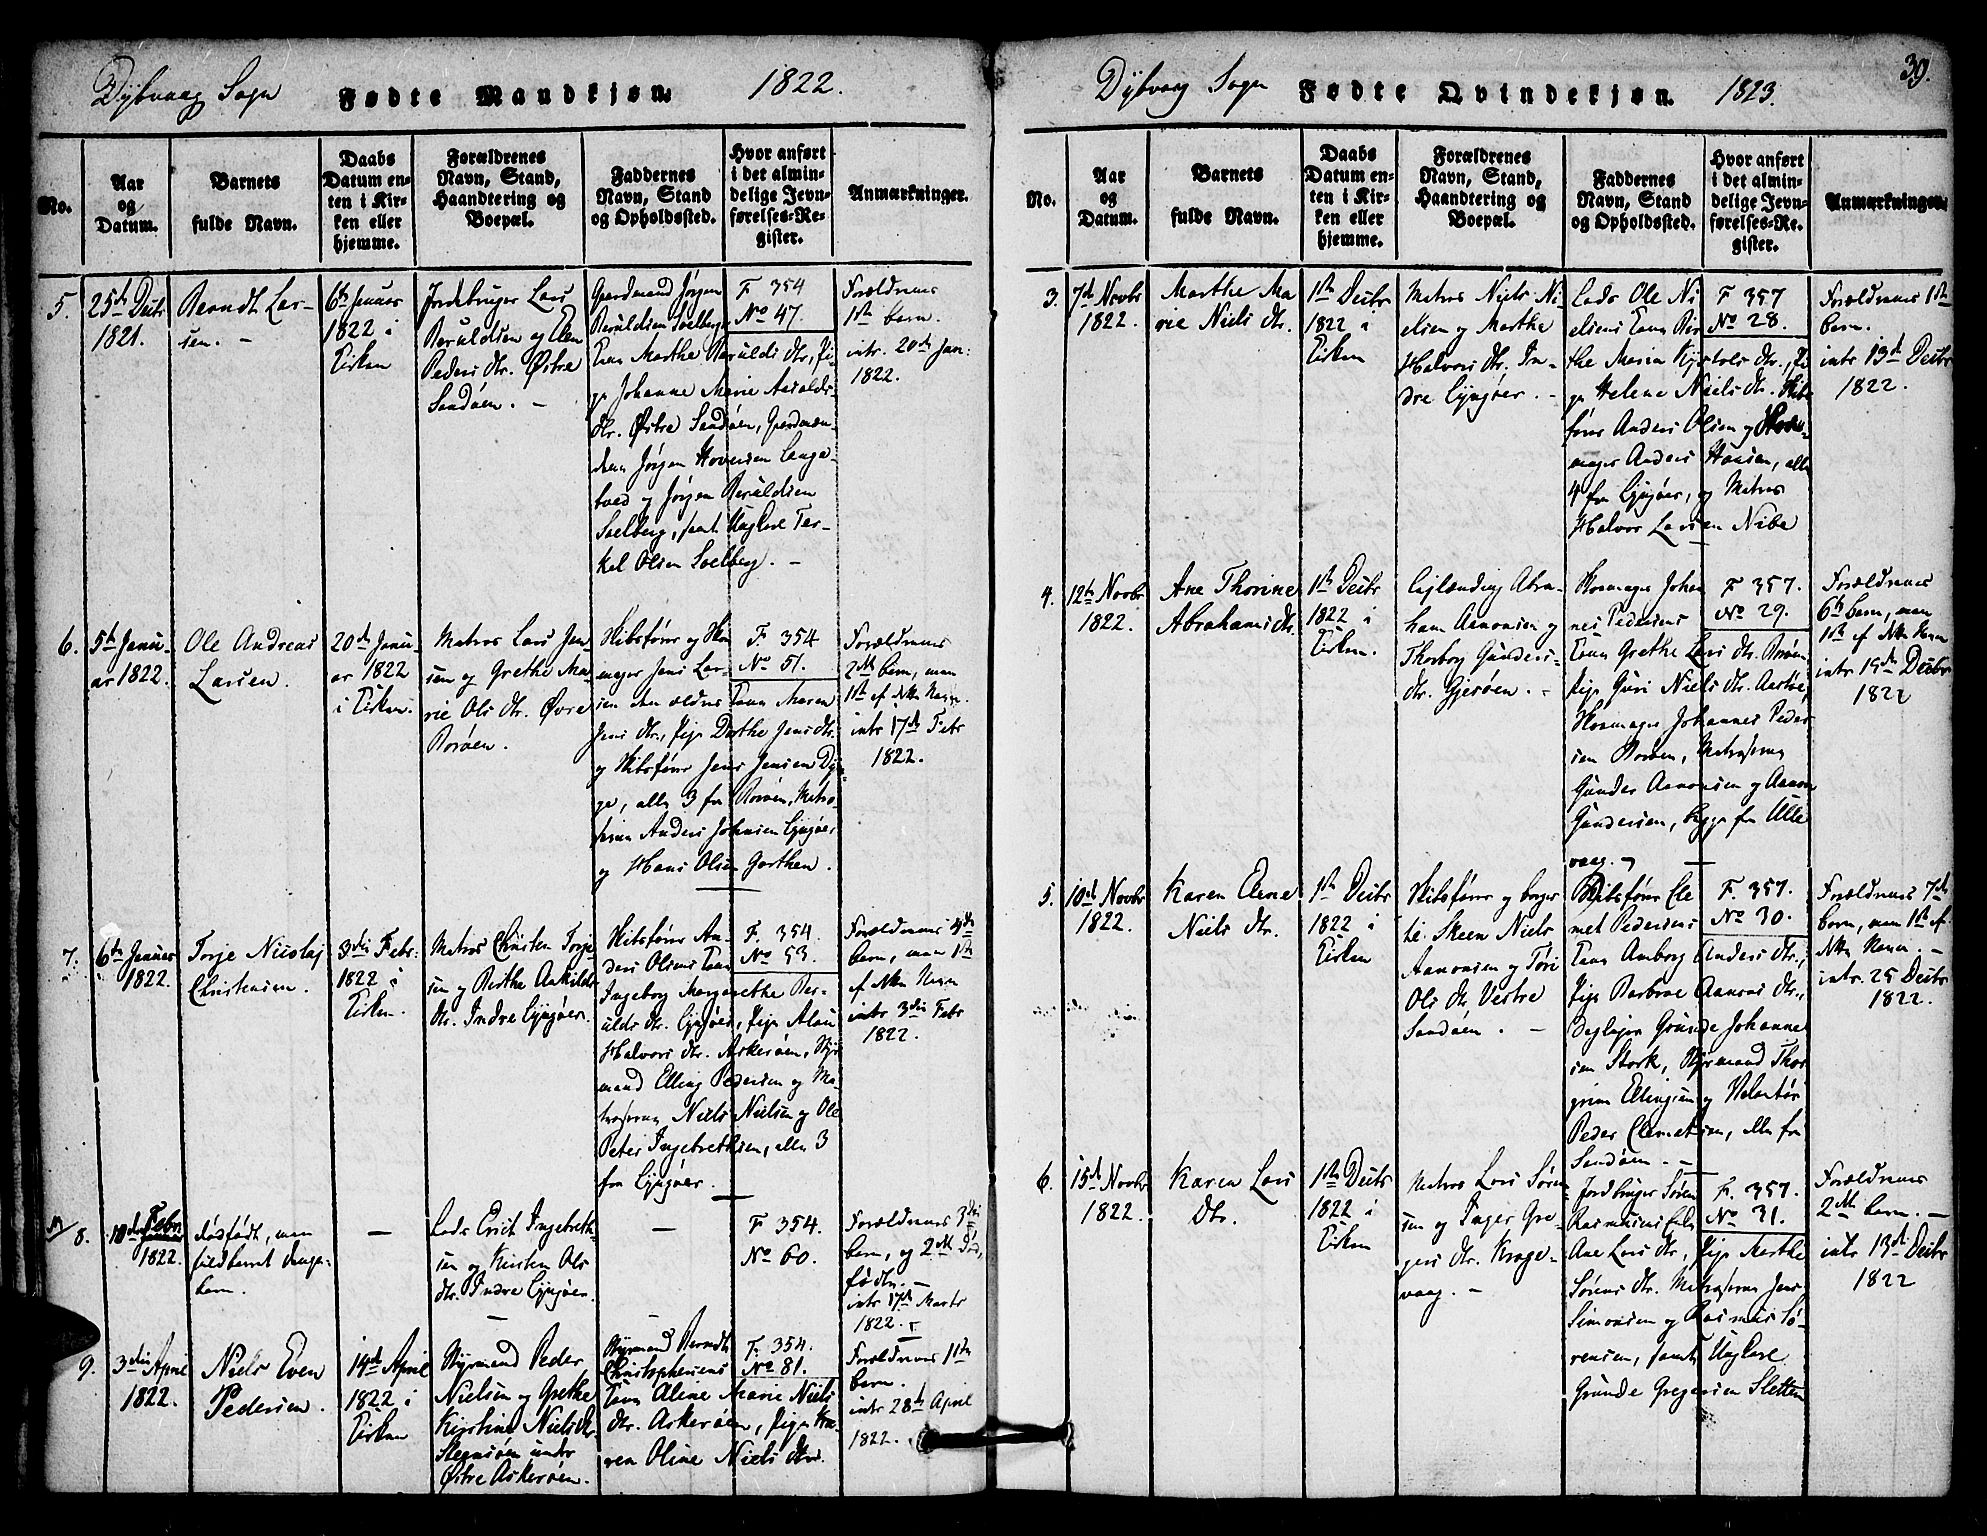 Dybvaag Sogn
Fødte Mandkjøn.
1822.
No.
Aar
og
Datum.
Barnets
fulde Navn.
Daabs
Datum en-
ten i Kir-
ken eller
hjemme.
Forældrenes
Navn, Stand,
Haandtering og
Boepæl.
Faddernes
Navn, Stand
og Opholdssted.
Hvor anført
i det almin-
delige Jevn-
førelses-Re-
gister.
Anmærkninger.
5.
25de Decbr
1821.
Berndt Lar-
sen. -
6te Januar
1822 i
Kirken
Jordbruger Lars
Beruldsen og Elen
Peders dtr. Østre
Sandøen. -
Gaardmand Jørgen
Beruldsen Soelberg
Kone Marthe Berulds dtr, Pi-
ge Johanne Marie Aarolds-
dtr. Østre Sandøen, Gaardmæn-
dene Jørgen Hovensen Lange-
boed og Jørgen Beruldsen
Soelberg, samt Ungkarl Ter-
kel Olsen Soelberg. -
F 354
No 47.
Forældrenes
1ste barn.
intr. 20de Jan:
1822.
6.
5te Janu-
ar 1822.
Ole Andreas
Larsen.
20de Janu-
ar 1822
i Kirken.
Matros Lars Jen
sen og Grethe Ma-
rie Ols dtr. Øvre
Borøen.
Skibsfører og Skou
mager Jens Lar-
sen den ældres Kone Maren
Jens dtr., Pige Dorthe Jens dtr.
og Skibsfører Jens Jensen Dyn-
ge, alle 3 fra Borøen, Matro-
serne Anders Johnsen Lyngøer
og Hans Olsen Garthen.
F. 354
No 51.
Forældrenes
2det barn, men
1ste af dette Navn.
intr 17de Febr
1822.
7.
6te Januar
1822.
Torje Nicolaj
Christensen.
3die Febr:
1822 i
Kirken.
Matros Christen Torje
sen og Berthe Askilds
dtr. Indre Lyngøer.
Skibsfører An-
ders Olsens Kone
Ingeborg Margarethe Ber-
ulds dtr. Lyngøer, Pige Alou
Halvors dtr. Askerøen, Styr
mand Elling Pedersen og Ma-
troserne Niels Nielsen og Ole
Peter Ingebrethsen, alle 3
fra Lyngøer.
F. 354.
No 53.
Forældrenes
barn, men 1ste
af dette Navn
intr 3die Febr
1822.
8.
Febr
1822.
dødfødt, men
fuldbaaret drenge-
barn.
-
Lods Erich Ingebreth-
sen og Kirsten Ols
dtr. Indre Lyngøer.
-
F 354.
No 60.
Forældrenes 3die
barn, og 2det død-
fødte. -
intr 17de Marts
1822.
9.
3die April
1822.
Niels Even
Pedersen.
14de April
1822 i
Kirken
Styrmand Peder
Nielsen og Grethe
Kirstine Niels dtr
under
Østre Askerøen.
Styrmand Berndt
Christophersens
Kone Alene Marie Niels
dtr. Askerøen, Pige Ka-
ren Oline Niels dtr
F. 354.
No 81.
Forældrenes 1ste
barn.
intr 28de April
1822.
Dybvaag Sogn
Fødte Qvindekjøn.
1823.
39.
No.
Aar
og
Datum.
Barnets
fulde Navn.
Daabs
Datum en-
ten i Kir-
ken eller
hjemme.
Forældrenes
Navn, Stand,
Haandtering og
Boepæl.
Faddernes
Navn, Stand
og Opholdssted.
Hvor anført
i det almin-
delige Jevn-
førelses-Re-
gister.
Anmærkninger.
3.
7de Novbr
1822.
Marthe Ma
rie Niels dtr.
1ste Decbr
1822 i
Kirken
Matros Niels Ni-
elsen og Marthe
Halvors dtr. In-
dre Lyngøer. -
Lods Ole Ni
elsens Kone Bir
the Maria Kjøstols dtr., Pi
ge Helene Niels dtr. Skibs
fører Anders Olsen og Skou-
mager Anders Hansen, alle
4 fra Lyngøer, og Matros
Halvor Larsen Nibe
F 357
No 28.
Forældrenes 1ste
barn.
intr 13de Decbr
1822.
4.
12te Novbr
1822.
Ane Thorine
Abrahams dtr.
1ste Decbr
1822 i
Kirken.
Leilænding Abra-
ham Aanonsen og
Thorborg Gunders-
dtr. Gjesøen. -
Skomager Johan
nes Pedersens
Kone Grethe Lars dtr. Borøen
Pige Guri Niels dtr. Aastøe,
Skomager Johannes Peder
sen Borøen, Matroserne
Gunder Aanonsen og Aanon
Gundersen, begge fra Ulle
vaag. -
F 357.
No 29.
Forældrenes
6te barn, men
1ste af dette Navn
intr 19de Decbr
1822
5.
10de Novbr
1822.
Karen Elene
Niels dtr.
1ste Decbr
1822 i
Kirken
Skibsfører og borger
til Skeen Niels
Aanonsen og Tori
Ols dtr Vestre
Sandøen. -
Skibsfører Cle
met Pedersens
Kone Amborg Anders dtr.,
Pige Barbroe Aanons dtr.,
Grunde Johanne
sen Stork, Styrmand Thor
grim Ellingsen og
Peder Clemetsen, alle fra
Sandøen. -
F. 357.
No 30.
Forældrenes 7de
barn, men 1ste af
dette Navn. -
intr 25 Decbr
1822.
6.
15de Novbr
1822.
Karen Lars
Dtr.
1ste Decbr
1822 i
Kirken
Matros Lars Søren
sen og Inger Gre-
gers dtr. Krage-
vaag. -
Jordbruger Søren
Rasmusens
Ane Lars dtr., Pige Marthe
Sørens dtr. Matroserne Jens
Simonsen og Rasmus Sø-
rensen, samt Ungkarl
Grunde Gregersen Sletten
F. 357.
No 31.
Forældrenes
2det barn. -
intr 13de Decbr
1822